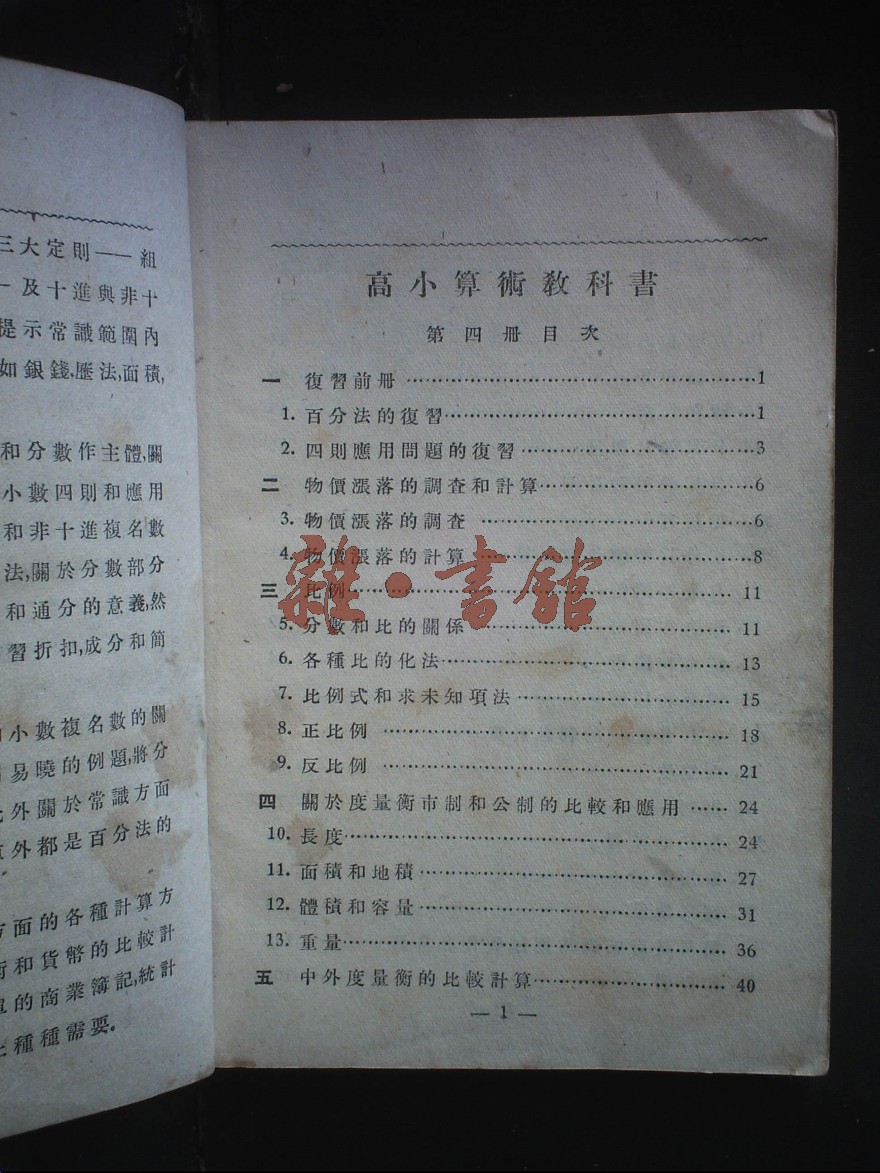 三大定則——組
及十進與非十
提示常識範圍內
如銀錢,歷法,面積,
和分數作主體,關
小數四則和應用
和非十進複名數
法,關於分數部分
和通分的意義,然
習折扣,成分和簡
小數複名數的關
易曉的例題,將分
外關於常識方面
外都是百分法的
方面的各種計算方
和貨幣的比較計
的商業簿記,統計
種種需要。
高小算術教科書
第四册目次
一 復習前册……1
1. 百分法的復習……1
2. 四則應用問題的復習……3
二 物價漲落的調查和計算……6
3. 物價漲落的調查……6
4. 物價漲落的計算……8
三 比例……11
5. 分數和比的關係……11
6. 各種比的化法……13
7. 比例式和求未知項法……15
8. 正比例……18
9. 反比例……21
四 關於度量衡市制和公制的比較和應用……24
10. 長度……24
11. 面積和地積……27
12. 體積和容量……31
13. 重量……36
五 中外度量衡的比較計算……40
— 1 —
雜·書館